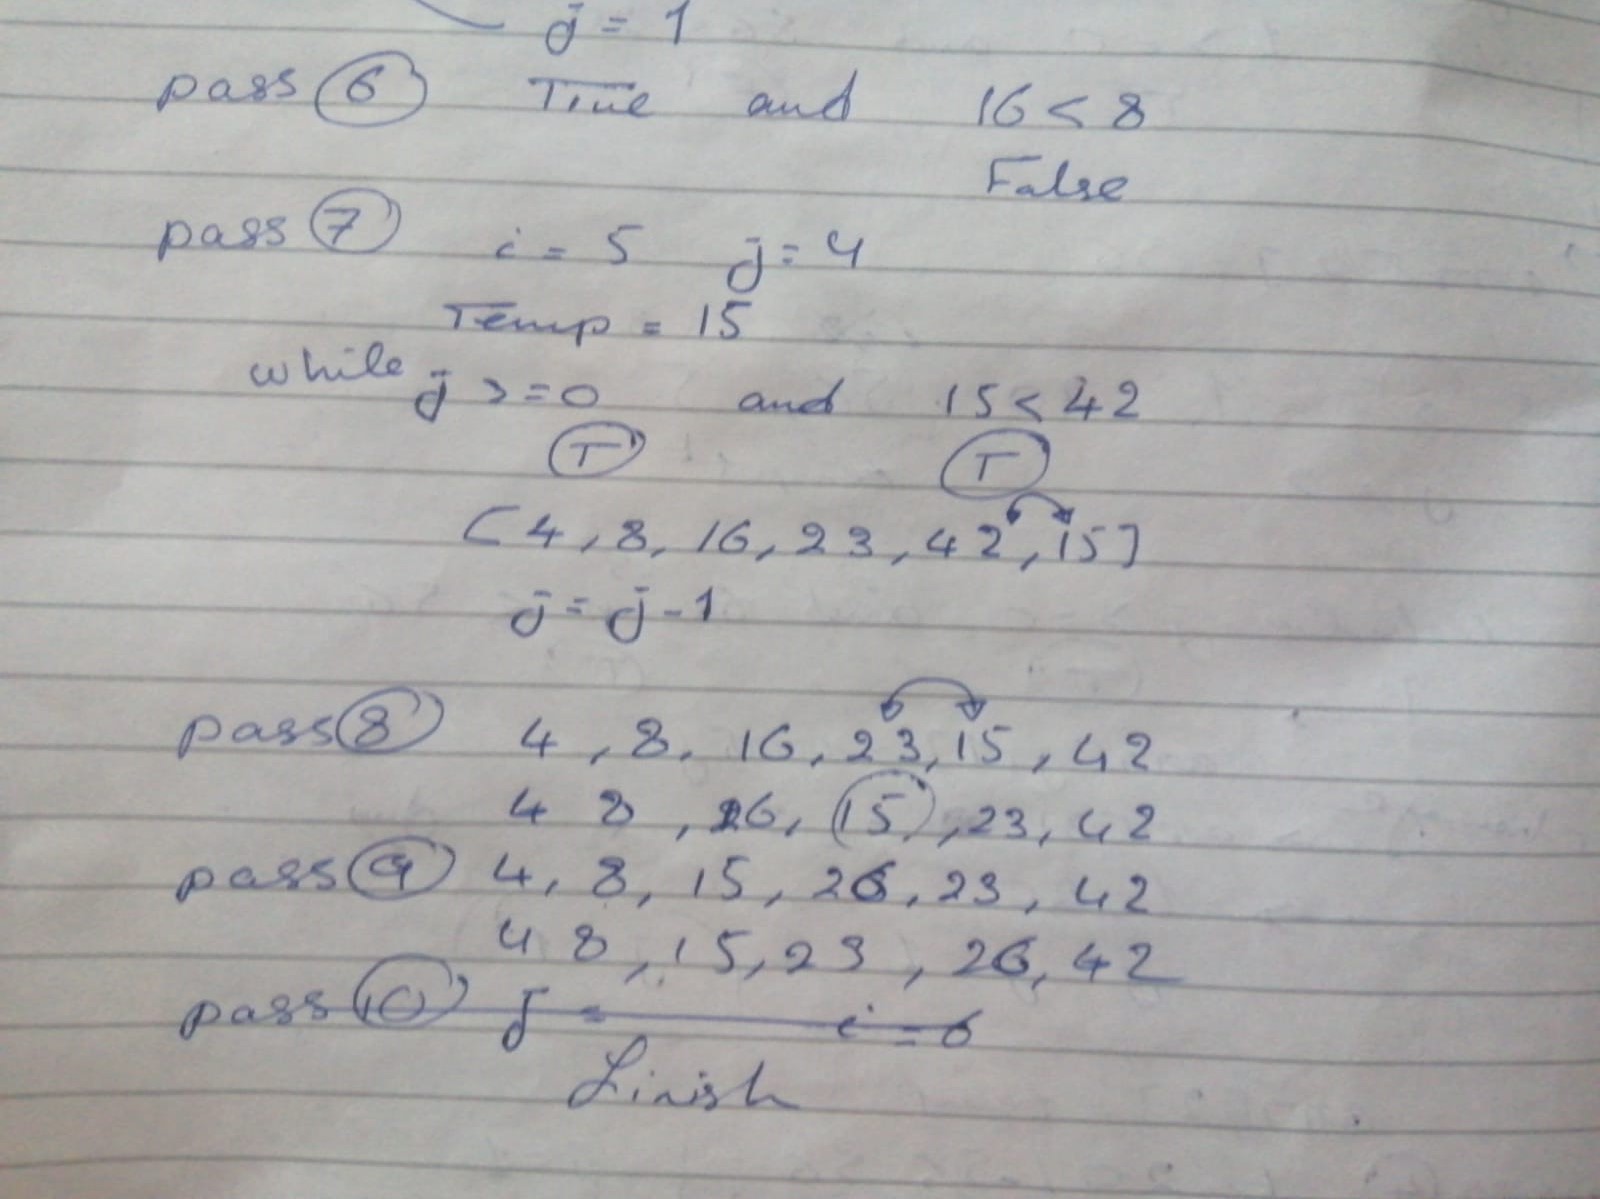 j = 1
pass 6 True and 16 < 8
False
pass 7 i = 5 j = 4
Temp = 15
while j >= 0 and 15 < 42
T T
[4, 8, 16, 23, 42, 15]
j = j - 1
pass 8 4, 8, 16, 23, 15, 42
4 8, 26, 15, 23, 42
pass 9 4, 8, 15, 26, 23, 42
4 8, 15, 23, 26, 42
pass 10 j = i = 6
Finish